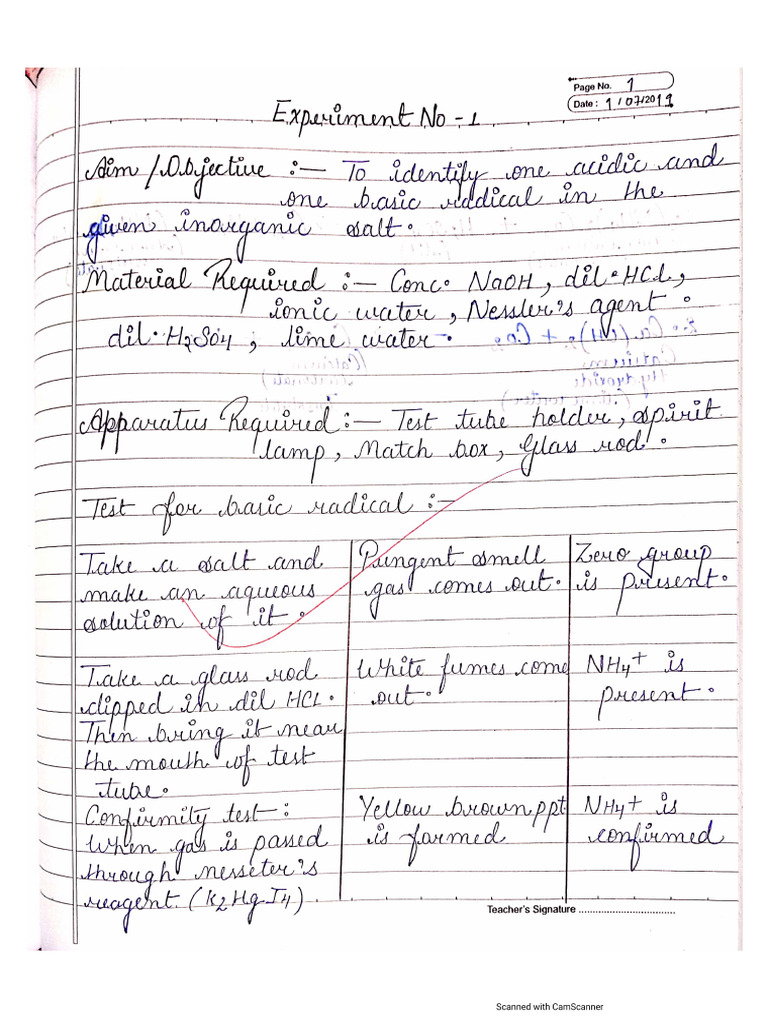 Page No. 1
Date : 1/07/2019
Experiment No - 1
Aim / Objective :— To identify one acidic and
one basic radical in the
given inorganic salt.
Material Required :— Conc. NaOH, dil. HCl,
ionic water, Nessler's agent.
dil. H2SO4, lime water.
Apparatus Required :— Test tube holder, spirit
lamp, Match box, Glass rod.
Test for basic radical :—
Take a salt and
make an aqueous
solution of it.
Pungent smell
gas comes out.
Zero group
is present.
Take a glass rod
dipped in dil HCl.
Then bring it near
the mouth of test
tube.
White fumes come
out.
NH4+ is
present.
Confirmity test :
When gas is passed
through nesseter's
reagent. (K2HgI4)
Yellow brown ppt
is formed
NH4+ is
confirmed
Teacher's Signature ................................
Scanned with CamScanner